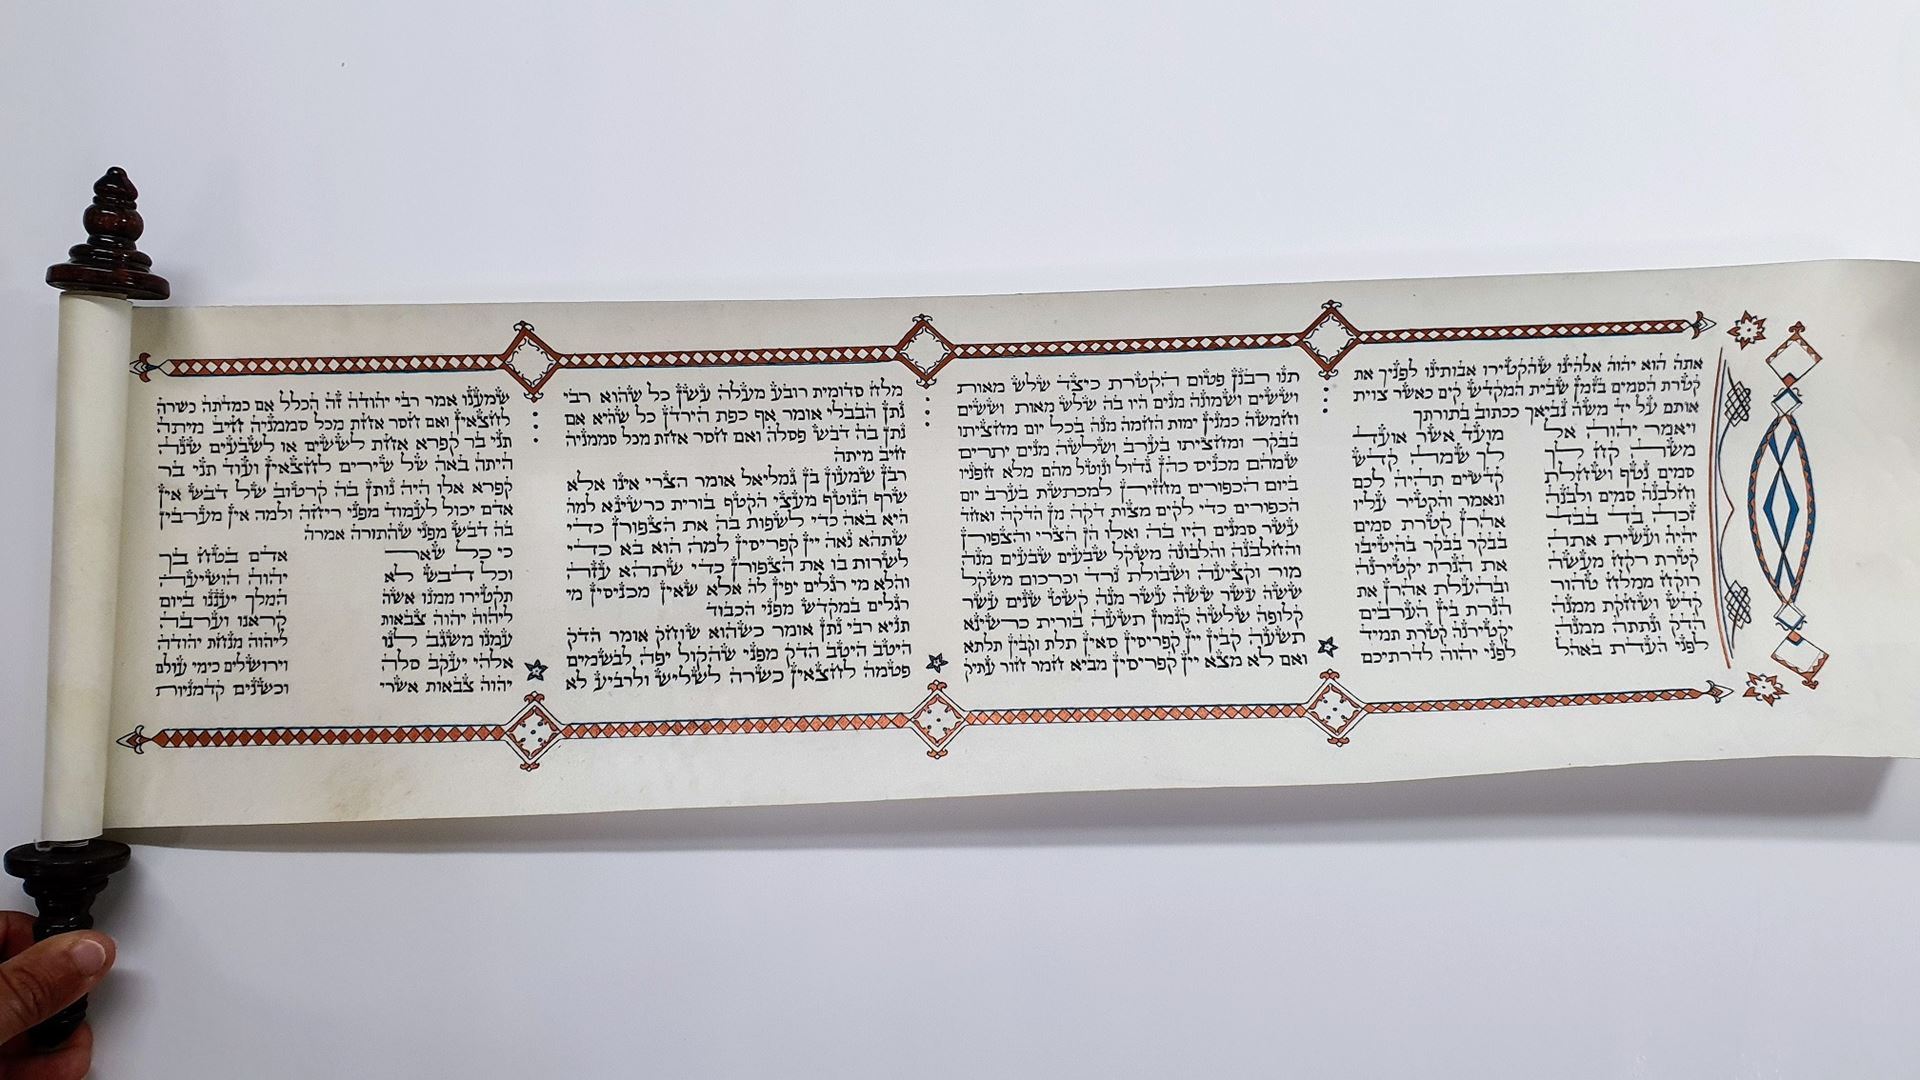 אתה הוא יהוה אלהינו שהקטירו אבותינו לפניך את
קטרת הסמים בזמן שבית המקדש קים כאשר צוית
אותם על יד משה נביאך ככתוב בתורתך
ויאמר יהוה אל
משה קח לך
סמים נטף ושחלת
וחלבנה סמים ולבנה
זכה בד בבד
יהיה ועשית אתה
קטרת רקח מעשה
רוקח ממלח טהור
קדש ושחקת ממנה
הדק ונתתה ממנה
לפני העדת באהל
מועד אשר אועד
לך שמה קדש
קדשים תהיה לכם
ונאמר והקטיר עליו
אהרן קטרת סמים
בבקר בבקר בהיטיבו
את הנרת יקטירנה
ובהעלת אהרן את
הנרת בין הערבים
יקטירנה קטרת תמיד
לפני יהוה לדרתיכם
תנו רבנן פטום הקטרת כיצד שלש מאות
וששים ושמונה מנים היו בה שלש מאות וששים
וחמשה כמנין ימות החמה מנה בכל יום מחציתו
בבקר ומחציתו בערב ושלשה מנים יתרים
שמהם מכניס כהן גדול ונוטל מהם מלא חפניו
ביום הכפורים מחזירן למכתשת בערב יום
הכפורים כדי לקים מצות דקה מן הדקה ואחד
עשר סמנים היו בה ואלו הן הצרי והצפורן
והחלבנה והלבונה משקל שבעים שבעים מנה
מור וקציעה ושבולת נרד וכרכום משקל
ששה עשר ששה עשר מנה קשט שנים עשר
קלופה שלשה קנמון תשעה בורית כרשינא
תשעה קבין יין קפריסין סאין תלת וקבין תלתא
ואם לא מצא יין קפריסין מביא חמר חור עתיק
מלח סדומית רובע מעלה עשן כל שהוא רבי
נתן הבבלי אומר אף כפת הירדן כל שהיא אם
נתן בה דבש פסלה ואם חסר אחת מכל סממניה
חיב מיתה
רבן שמעון בן גמליאל אומר הצרי אינו אלא
שרף הנוטף מעצי הקטף בורית כרשינא למה
היא באה כדי לשפות בה את הצפורן כדי
שתהא נאה יין קפריסין למה הוא בא כדי
לשרות בו את הצפורן כדי שתהא עזה
והלא מי רגלים יפין לה אלא שאין מכניסין מי
רגלים במקדש מפני הכבוד
תניא רבי נתן אומר כשהוא שוחק אומר הדק
היטב היטב הדק מפני שהקול יפה לבשמים
פטמה לחצאין כשרה לשליש ולרביע לא
שמענו אמר רבי יהודה זה הכלל אם כמדתה כשרה
לחצאין ואם חסר אחת מכל סממניה חיב מיתה
תני בר קפרא אחת לששים או לשבעים שנה
היתה באה של שירים לחצאין ועוד תני בר
קפרא אלו היה נותן בה קרטוב של דבש אין
אדם יכול לעמוד מפני ריחה ולמה אין מערבין
בה דבש מפני שהתורה אמרה
כי כל שאר
וכל דבש לא
תקטירו ממנו אשה
ליהוה יהוה צבאות
עמנו משגב לנו
אלהי יעקב סלה
יהוה צבאות אשרי
אדם בטח בך
יהוה הושיעה
המלך יעננו ביום
קראנו וערבה
ליהוה מנחת יהודה
וירושלים כימי עולם
וכשנים קדמניות